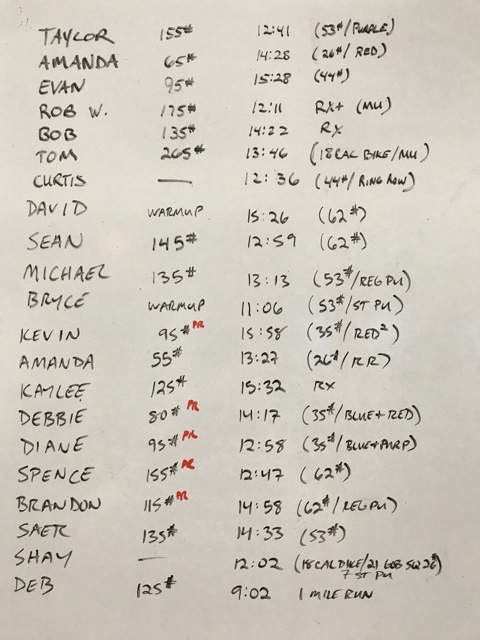 TAYLOR 155# 12:41 (53#/PURPLE)
AMANDA 65# 14:28 (26#/RED)
EVAN 95# 15:28 (44#)
ROB W. 175# 12:11 RX+ (MU)
BOB 135# 14:22 RX
TOM 265# 13:46 (18CAL BIKE/MU)
CURTIS — 12:36 (44#/RING ROW)
DAVID WARMUP 15:26 (62#)
SEAN 145# 12:59 (62#)
MICHAEL 135# 13:13 (53#/REG PU)
BRYCE WARMUP 11:06 (53#/ST PU)
KEVIN 95# PR 15:58 (35#/RED²)
AMANDA 55# 13:27 (26#/RR)
KAYLEE 125# 15:32 RX
DEBBIE 80# PR 14:17 (35#/BLUE+RED)
DIANE 95# PR 12:58 (35#/BLUE+PURP)
SPENCE 155# PR 12:47 (62#)
BRANDON 115# PR 14:58 (62#/REG PU)
SAER 135# 14:33 (53#)
SHAY — 12:02 (18CAL BIKE/21 GOB SQ 26#)
7 ST PU
DEB 125# 9:02 1 MILE RUN